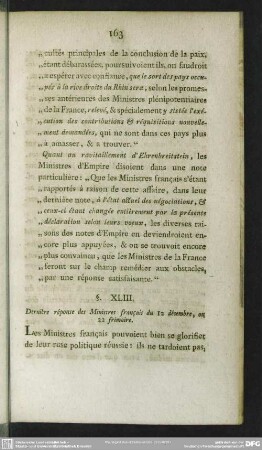 163
„ cultés principales de la conclusion de la paix,
„ étant débarassées, poursuivoient ils, on sauroit
„ espérer avec confiance, que le sort des pays occu-
„ pés à la rive droite du Rhin sera, selon les promes-
„ ses antérieures des Ministres plénipotentiaires
„ de la France, relevé, & spécialement y cessée l'exé-
„ cution des contributions & réquisitions nouvelle-
„ ment demandées, qui ne sont dans ces pays plus
„ à amasser, & à trouver."
Quant au ravitaillement d'Ehrenbreitstein, les
Ministres d'Empire disoient dans une note
particulière: „Que les Ministres français s'étant
„ rapportés à raison de cette affaire, dans leur
„ dernière note, à l'état actuel des négociations, &
„ ceux-ci étant changés entièrement par la présente
„ déclaration selon leurs voeux, les diverses rai-
„ sons des notes d'Empire en deviendroient en-
„ core plus appuyées, & on se trouvoit encore
„ plus convaincu, que les Ministres de la France
„ seront sur le champ remédier aux obstacles,
„ par une réponse satisfaisante."
§. XLIII.
Dernière réponse des Ministres français du 12 décembre, ou
22 frimaire.
Les Ministres français pouvoient bien se glorifier
de leur rute politique réussie: ils ne tardoient pas,